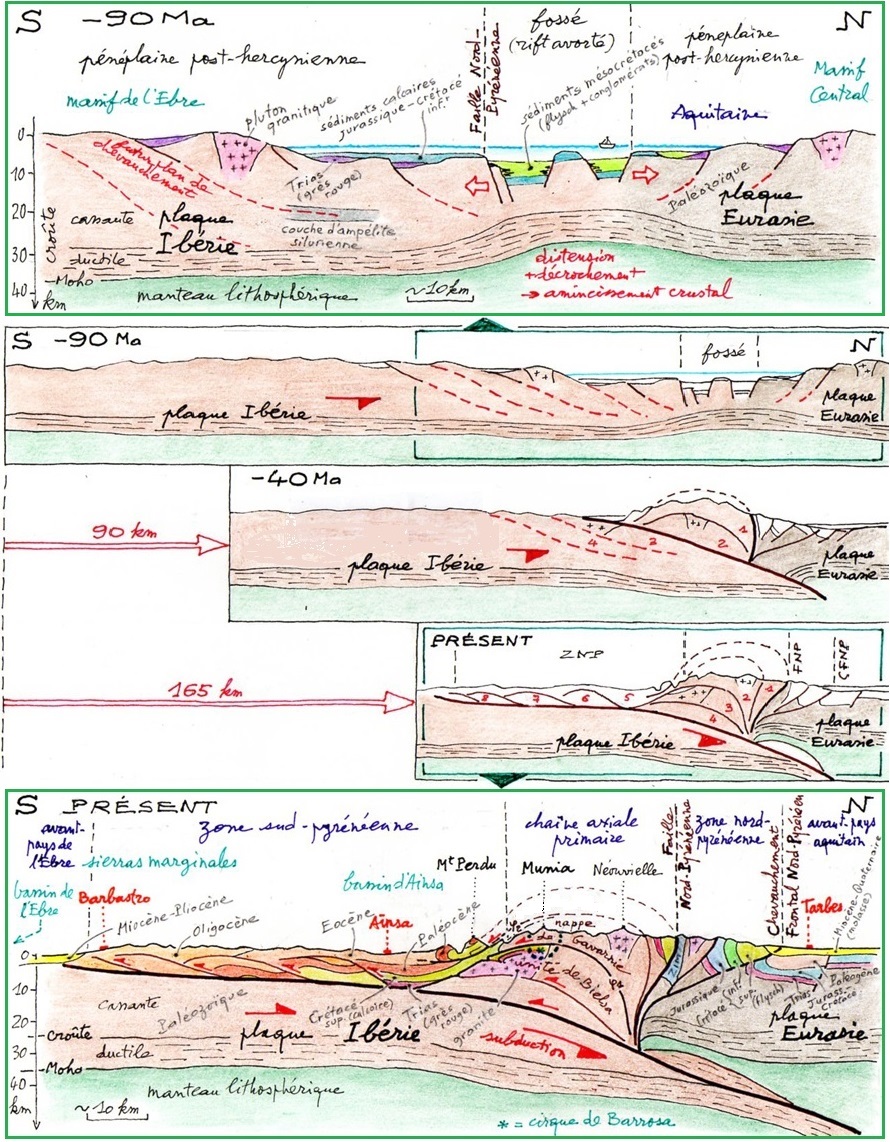 S -90 Ma
fossé
(rift avorté)
N
pénéplaine post-hercynienne
Faille Nord-
Pyrénéenne
pénéplaine
post-hercynienne
massif de l'Ebre
pluton
granitique
sédiments calcaires
Jurassique-Crétacé
infr
sédiments mésocrétacés
(flysch + conglomérats)
Aquitaine
Massif
Central
0
10
20
30
40
km
croûte
futur plan de
chevauchement
Trias
(grès
rouge)
Paléozoïque
cassante
plaque
Ibérie
couche d'ampélite
silurienne
plaque
Eurasie
ductile
Moho
manteau lithosphérique
~10 km
distension
+décrochement
→ amincissement crustal
S -90 Ma
fossé
N
plaque Ibérie
plaque
Eurasie
-40 Ma
90 km
1
2
3
4
plaque Ibérie
plaque
Eurasie
PRÉSENT
ZNP
FNP
CFNP
165 km
8
7
6
5
4
3
2
1
plaque Ibérie
plaque
Eurasie
S PRÉSENT
N
avant-
pays de
l'Ebre
zone sud-pyrénéenne
chaîne axiale
primaire
Faille
Nord-Pyrénéenne
zone nord-
pyrénéenne
Chevauchement
Frontal Nord-Pyrénéen
avant-pays
aquitain
sierras marginales
bassin de
l'Ebre
Barbastro
bassin d'Ainsa
Mt Perdu
Munia
Néouvielle
Tarbes
Miocène-Quaternaire
(molasse)
Miocène-Pliocène
Oligocène
Eocène
Aïnsa
Paléocène
nappe
de
Gavarnie
unité de Bielsa
ZIM
0
10
20
30
40
km
cassante
Paléozoïque
Crétacé
sup. (calcaire)
Trias
(grès
rouge)
granite
Jurassique
Crétacé
infr
sup.
(flysch)
Trias
Jurass.
Crétacé
Paléogène
croûte
plaque
Ibérie
plaque
Eurasie
ductile
subduction
Moho
manteau lithosphérique
~10 km
* = cirque de Barrosa